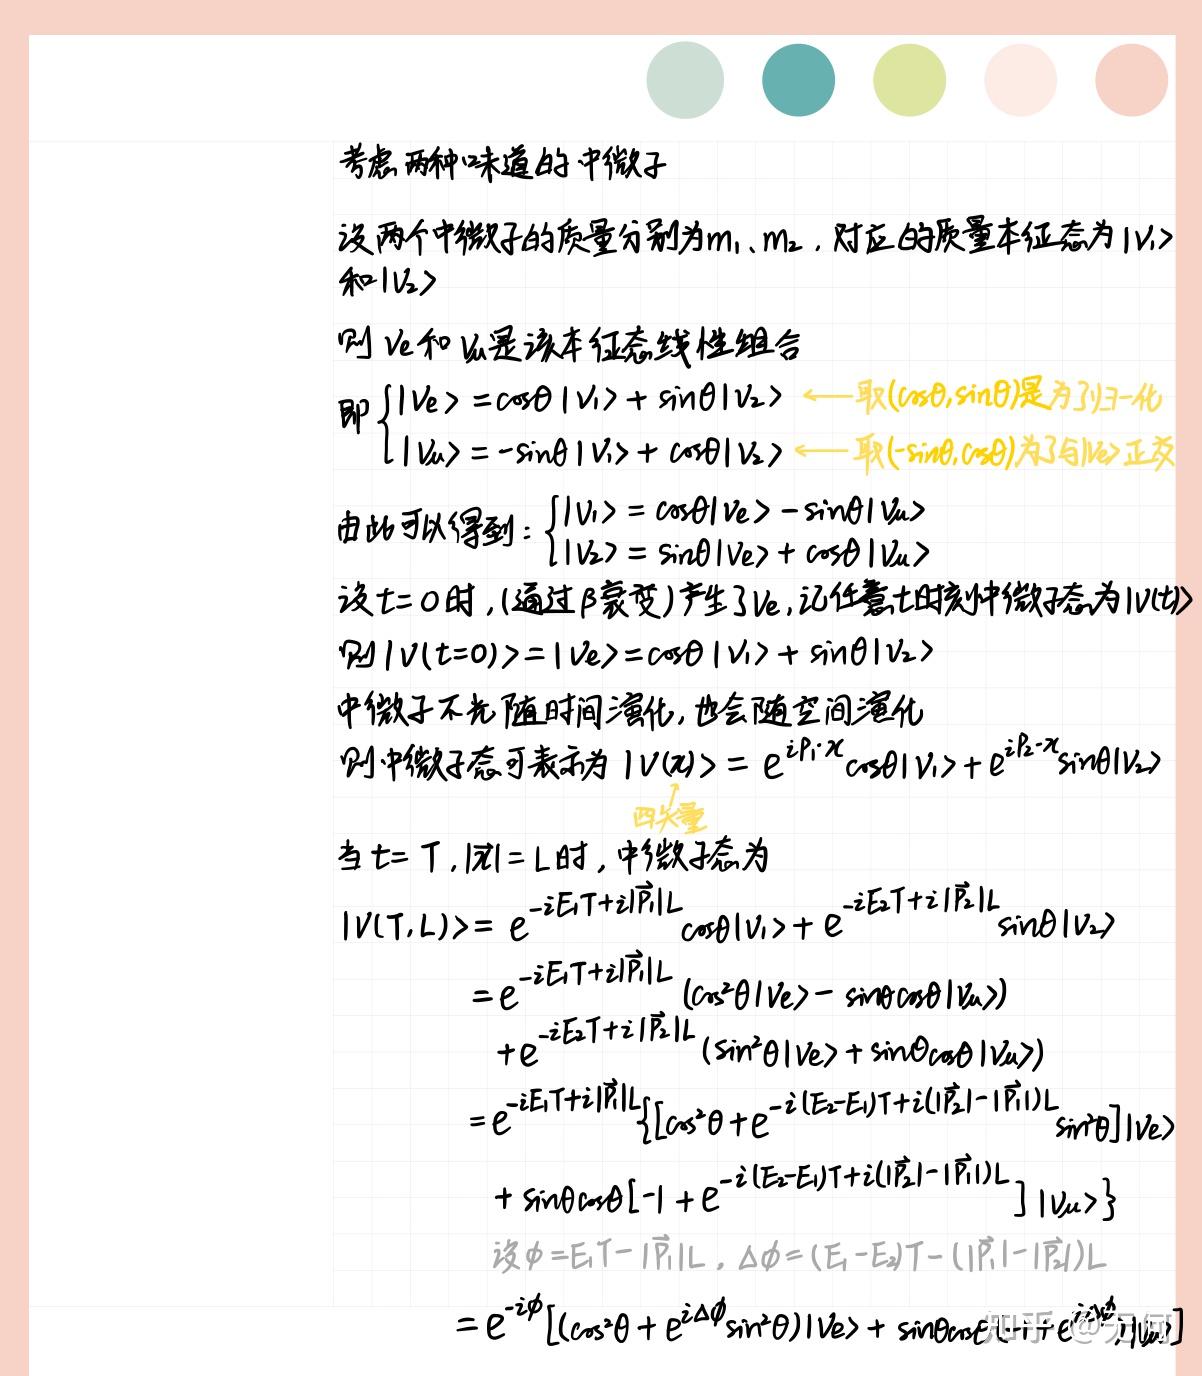 考虑两种味道的中微子
设两个中微子的质量分别为m₁、m₂，对应的质量本征态为|ν₁>
和|ν₂>
则 νe和 νμ是该本征态线性组合
即 { |νe> = cosθ|ν₁> + sinθ|ν₂> ← 取(cosθ,sinθ)是为了归一化
|νμ> = -sinθ|ν₁> + cosθ|ν₂> ← 取(-sinθ,cosθ)为了与|νe>正交
由此可以得到： { |ν₁> = cosθ|νe> - sinθ|νμ>
|ν₂> = sinθ|νe> + cosθ|νμ>
设t=0时，(通过β衰变)产生了νe，记任意t时刻中微子态为|ν(t)>
则|ν(t=0)> = |νe> = cosθ|ν₁> + sinθ|ν₂>
中微子不光随时间演化，也会随空间演化
则中微子态可表示为 |ν(x)> = e^{iP₁·x}cosθ|ν₁> + e^{iP₂·x}sinθ|ν₂>
四矢量
当t=T，|x⃗|=L时，中微子态为
|ν(T,L)> = e^{-iE₁T+i|P⃗₁|L}cosθ|ν₁> + e^{-iE₂T+i|P⃗₂|L}sinθ|ν₂>
= e^{-iE₁T+i|P⃗₁|L}(cos²θ|νe> - sinθcosθ|νμ>)
+ e^{-iE₂T+i|P⃗₂|L}(sin²θ|νe> + sinθcosθ|νμ>)
= e^{-iE₁T+i|P⃗₁|L}{[cos²θ + e^{-i(E₂-E₁)T+i(|P⃗₂|-|P⃗₁|)L}sin²θ]|νe>
+ sinθcosθ[-1 + e^{-i(E₂-E₁)T+i(|P⃗₂|-|P⃗₁|)L}]|νμ>}
设φ=E₁T-|P⃗₁|L，Δφ=(E₁-E₂)T-(|P⃗₁|-|P⃗₂|)L
= e^{-iφ}[(cos²θ + e^{iΔφ}sin²θ)|νe> + sinθcosθ(-1+e^{iΔφ})|νμ>]
知乎 @无何